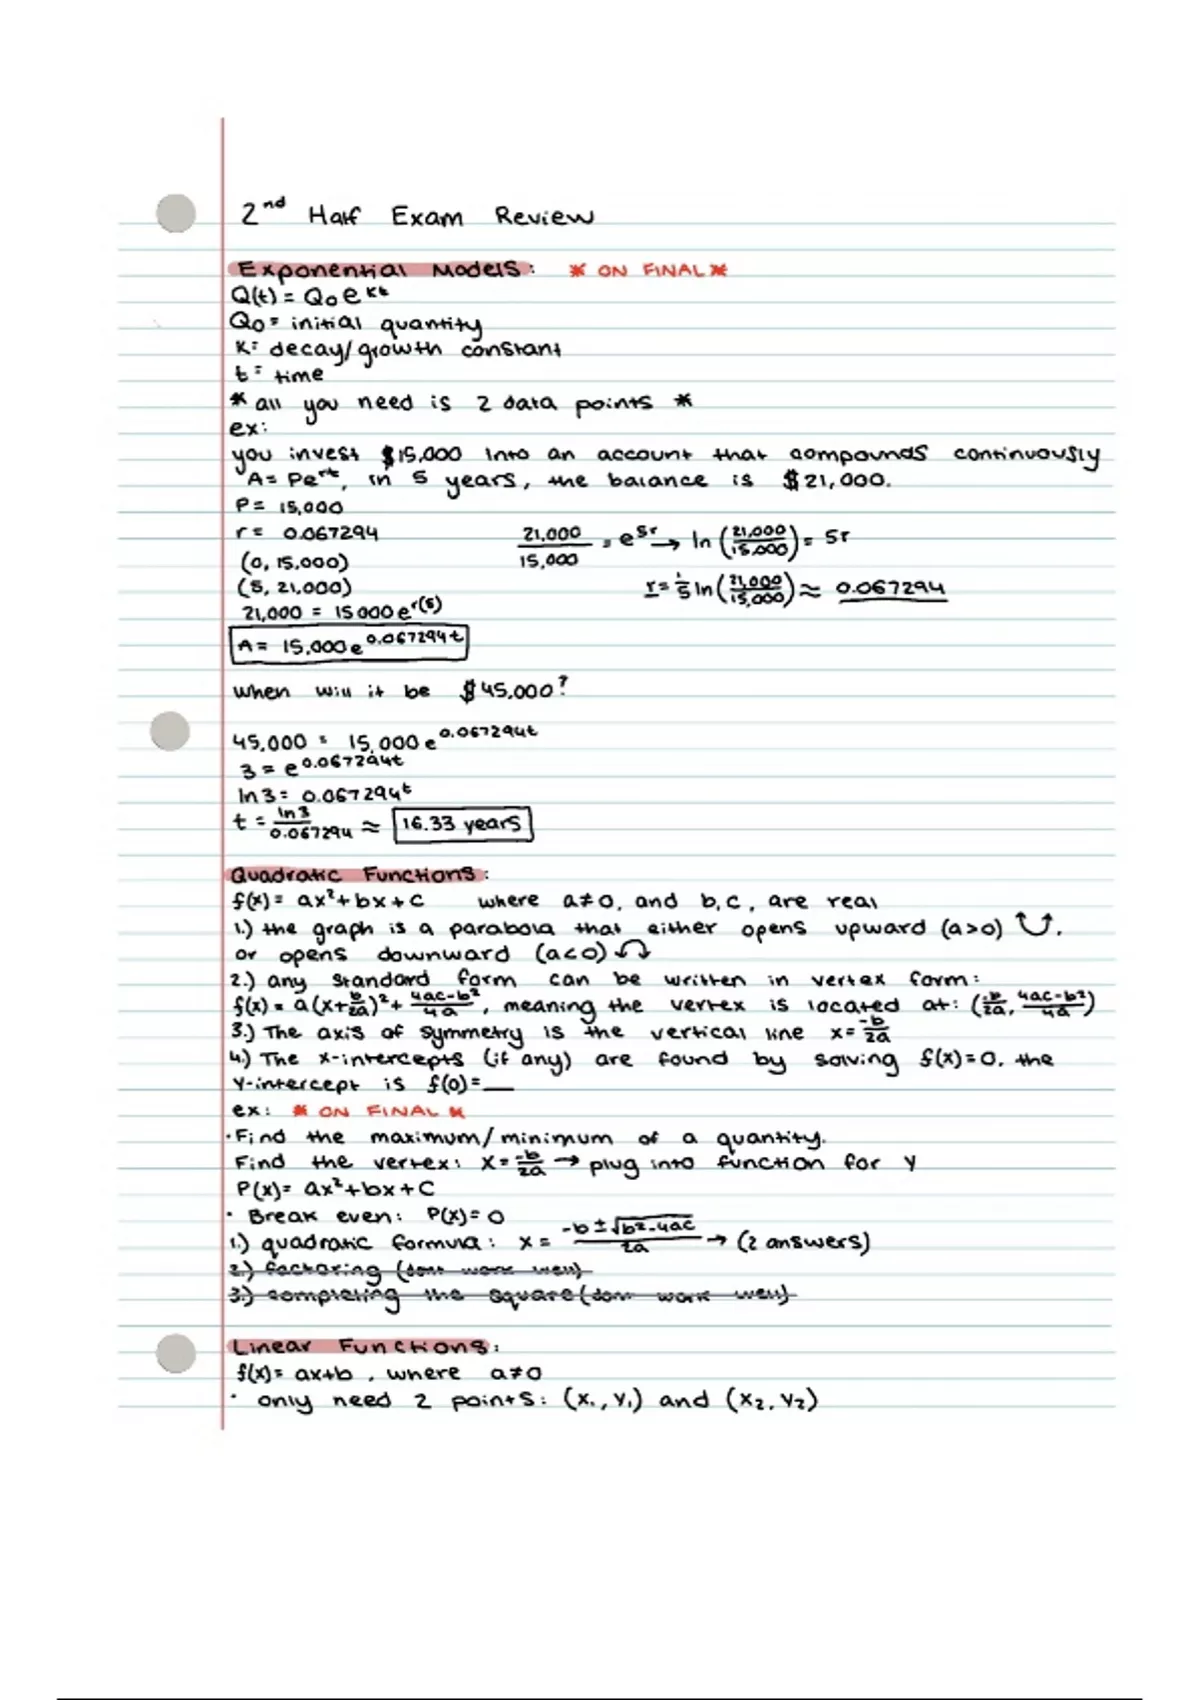 2nd Half Exam Review
Exponential Models: * ON FINAL *
Q(t) = Q₀e^kt
Q₀ = initial quantity
K = decay/growth constant
t = time
* all you need is 2 data points *
ex:
you invest $15,000 into an account that compounds continuously
A = Pe^rt, in 5 years, the balance is $21,000.
P = 15,000
r = 0.067294
21,000/15,000 = e^5r → ln(21,000/15,000) = 5r
(0, 15,000)
(5, 21,000)
r = 1/5 ln(21,000/15,000) ≈ 0.067294
21,000 = 15000e^r(5)
A = 15,000e^0.067294t
when will it be $45,000?
45,000 = 15,000e^0.067294t
3 = e^0.067294t
ln3 = 0.067294t
t = ln3/0.067294 ≈ 16.33 years
Quadratic Functions:
f(x) = ax²+bx+c where a≠0, and b,c, are real
1.) the graph is a parabola that either opens upward (a>0).
or opens downward (a<0)
2.) any standard form can be written in vertex form:
f(x) = a(x+b/2a)²+ 4ac-b²/4a, meaning the vertex is located at: (-b/2a, 4ac-b²/4a)
3.) The axis of symmetry is the vertical line x = -b/2a
4.) The x-intercepts (if any) are found by solving f(x)=0. the
Y-intercept is f(0)=__
ex: * ON FINAL *
· Find the maximum/minimum of a quantity.
Find the vertex: x = -b/2a → plug into function for y
P(x) = ax²+bx+c
· Break even: P(x) = 0
1.) quadratic formula: x = -b±√b²-4ac/2a → (2 answers)
2.) factoring (dont work well)
3.) completing the square (dont work well)
Linear Functions:
f(x) = ax+b, where a≠0
· only need 2 points: (x₁, y₁) and (x₂, y₂)